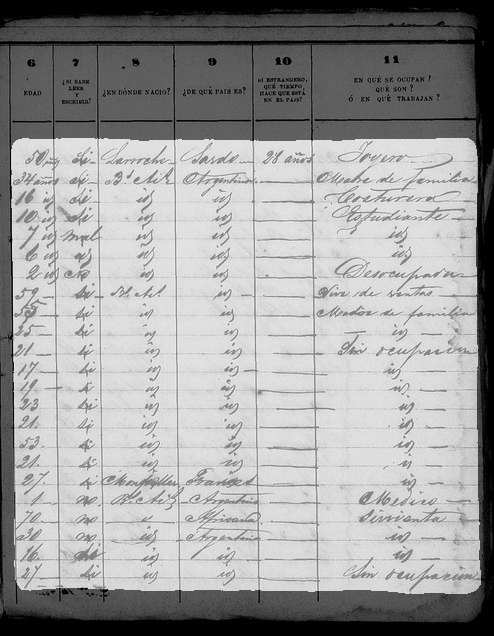 6 7 8 9 10 11
EDAD ¿NI SABE LEER Y ESCRIBIR? ¿EN DÓNDE NACIÓ? ¿DE QUÉ PAIS ES? SI ESTRANGERO, QUÉ TIEMPO HACE QUE ESTÁ EN EL PAIS? EN QUÉ SE OCUPAN? QUÉ SON? Ó EN QUÉ TRABAJAN?
50 Si Sardo 28 años Joyero
34 años si Bs Ais Argentina Madre de familia
16 id si id id Costurera
10 id si id id Estudiante
7 id mal id id id
6 id id id id
2 id id id Desocupada
59 si Bs As id Vive de rentas
si id id Madre de familia
25 si id id id
21 si id id Sin ocupacion
17 si id id id
19 si id id id
23 si id id id
21 si id id id
53 si id id id
21 si id id id
27 si Frances
1 n Bs As Argentino Medico
70 n Africana Sirvienta
30 n id Argentina id
16 si id id id
27 si id id Sin ocupacion